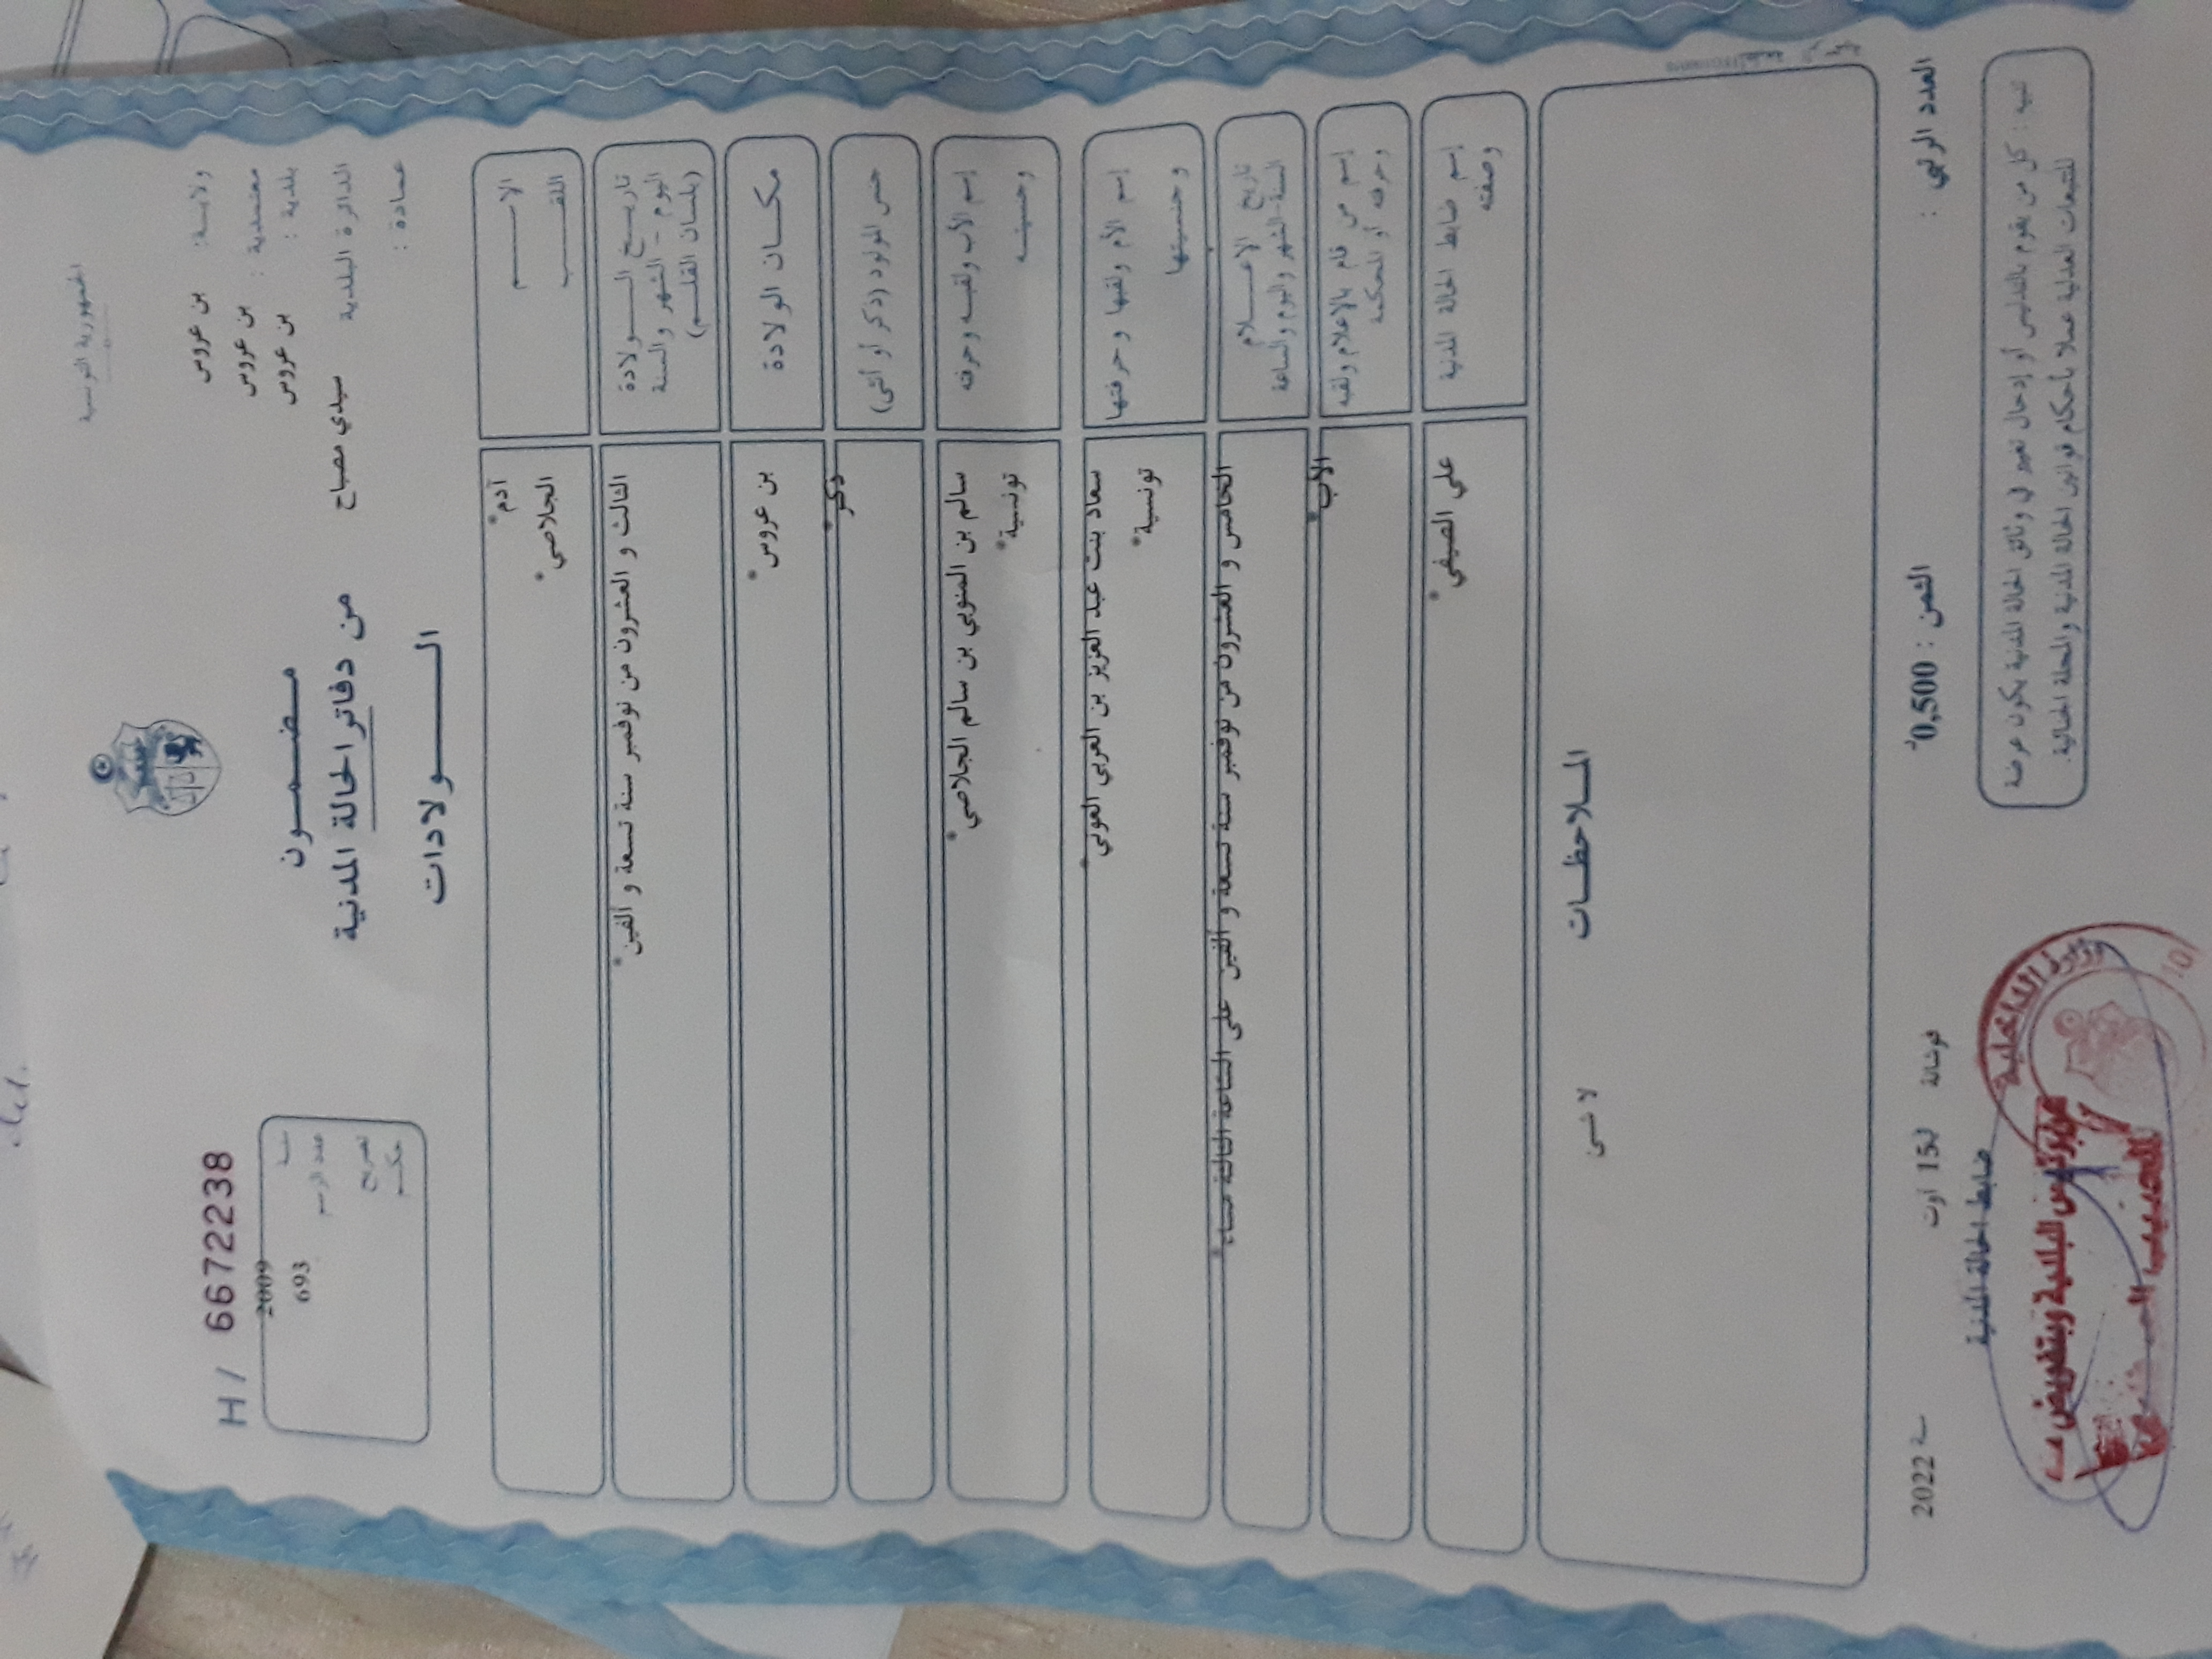 الجمهورية التونسية
ولاية: بن عروس
معتمدية : بن عروس
بلدية : بن عروس
الدائرة البلدية سيدي مصباح
عمادة :
H / 66722238
سنة 2009
عدد الرسم 693
تصريح
حكم
مضمون
من دفاتر الحالة المدنية
الولادات
الاسم آدم*
اللقب الجلاصي*
تاريخ الولادة الثالث و العشرون من نوفمبر سنة تسعة و الفين*
اليوم - الشهر والسنة
(بلسان القلم)
مكان الولادة بن عروس*
جنس المولود (ذكر أو أنثى) ذكر*
إسم الأب ولقبه وحرفته سالم بن المنوبي بن سالم الجلاصي*
وجنسيته تونسية*
إسم الأم ولقبها وحرفتها سعاد بنت عبد العزيز بن العربي العوني*
وجنسيتها تونسية*
تاريخ الاعلام الخامس و العشرون من نوفمبر سنة تسعة و الفين على الساعة الثالثة مساء*
السنة-الشهر واليوم والساعة
إسم من قام بالاعلام ولقبه الاب*
وحرفته أو المحكمة
إسم ضابط الحالة المدنية علي الصيفي*
وصفته
الملاحظات
لا شئ
العدد الرتبي : الثمن : 0,500د فوشانة في 15 اوت سنة 2022
ضابط الحالة المدنية
تنبيه : كل من يقوم بالتدليس أو إدخال تغيير في وثائق الحالة المدنية يكون عرضة
للتتبعات العدلية عملا بأحكام قوانين الحالة المدنية والمجلة الجنائية.
وزارة الداخلية